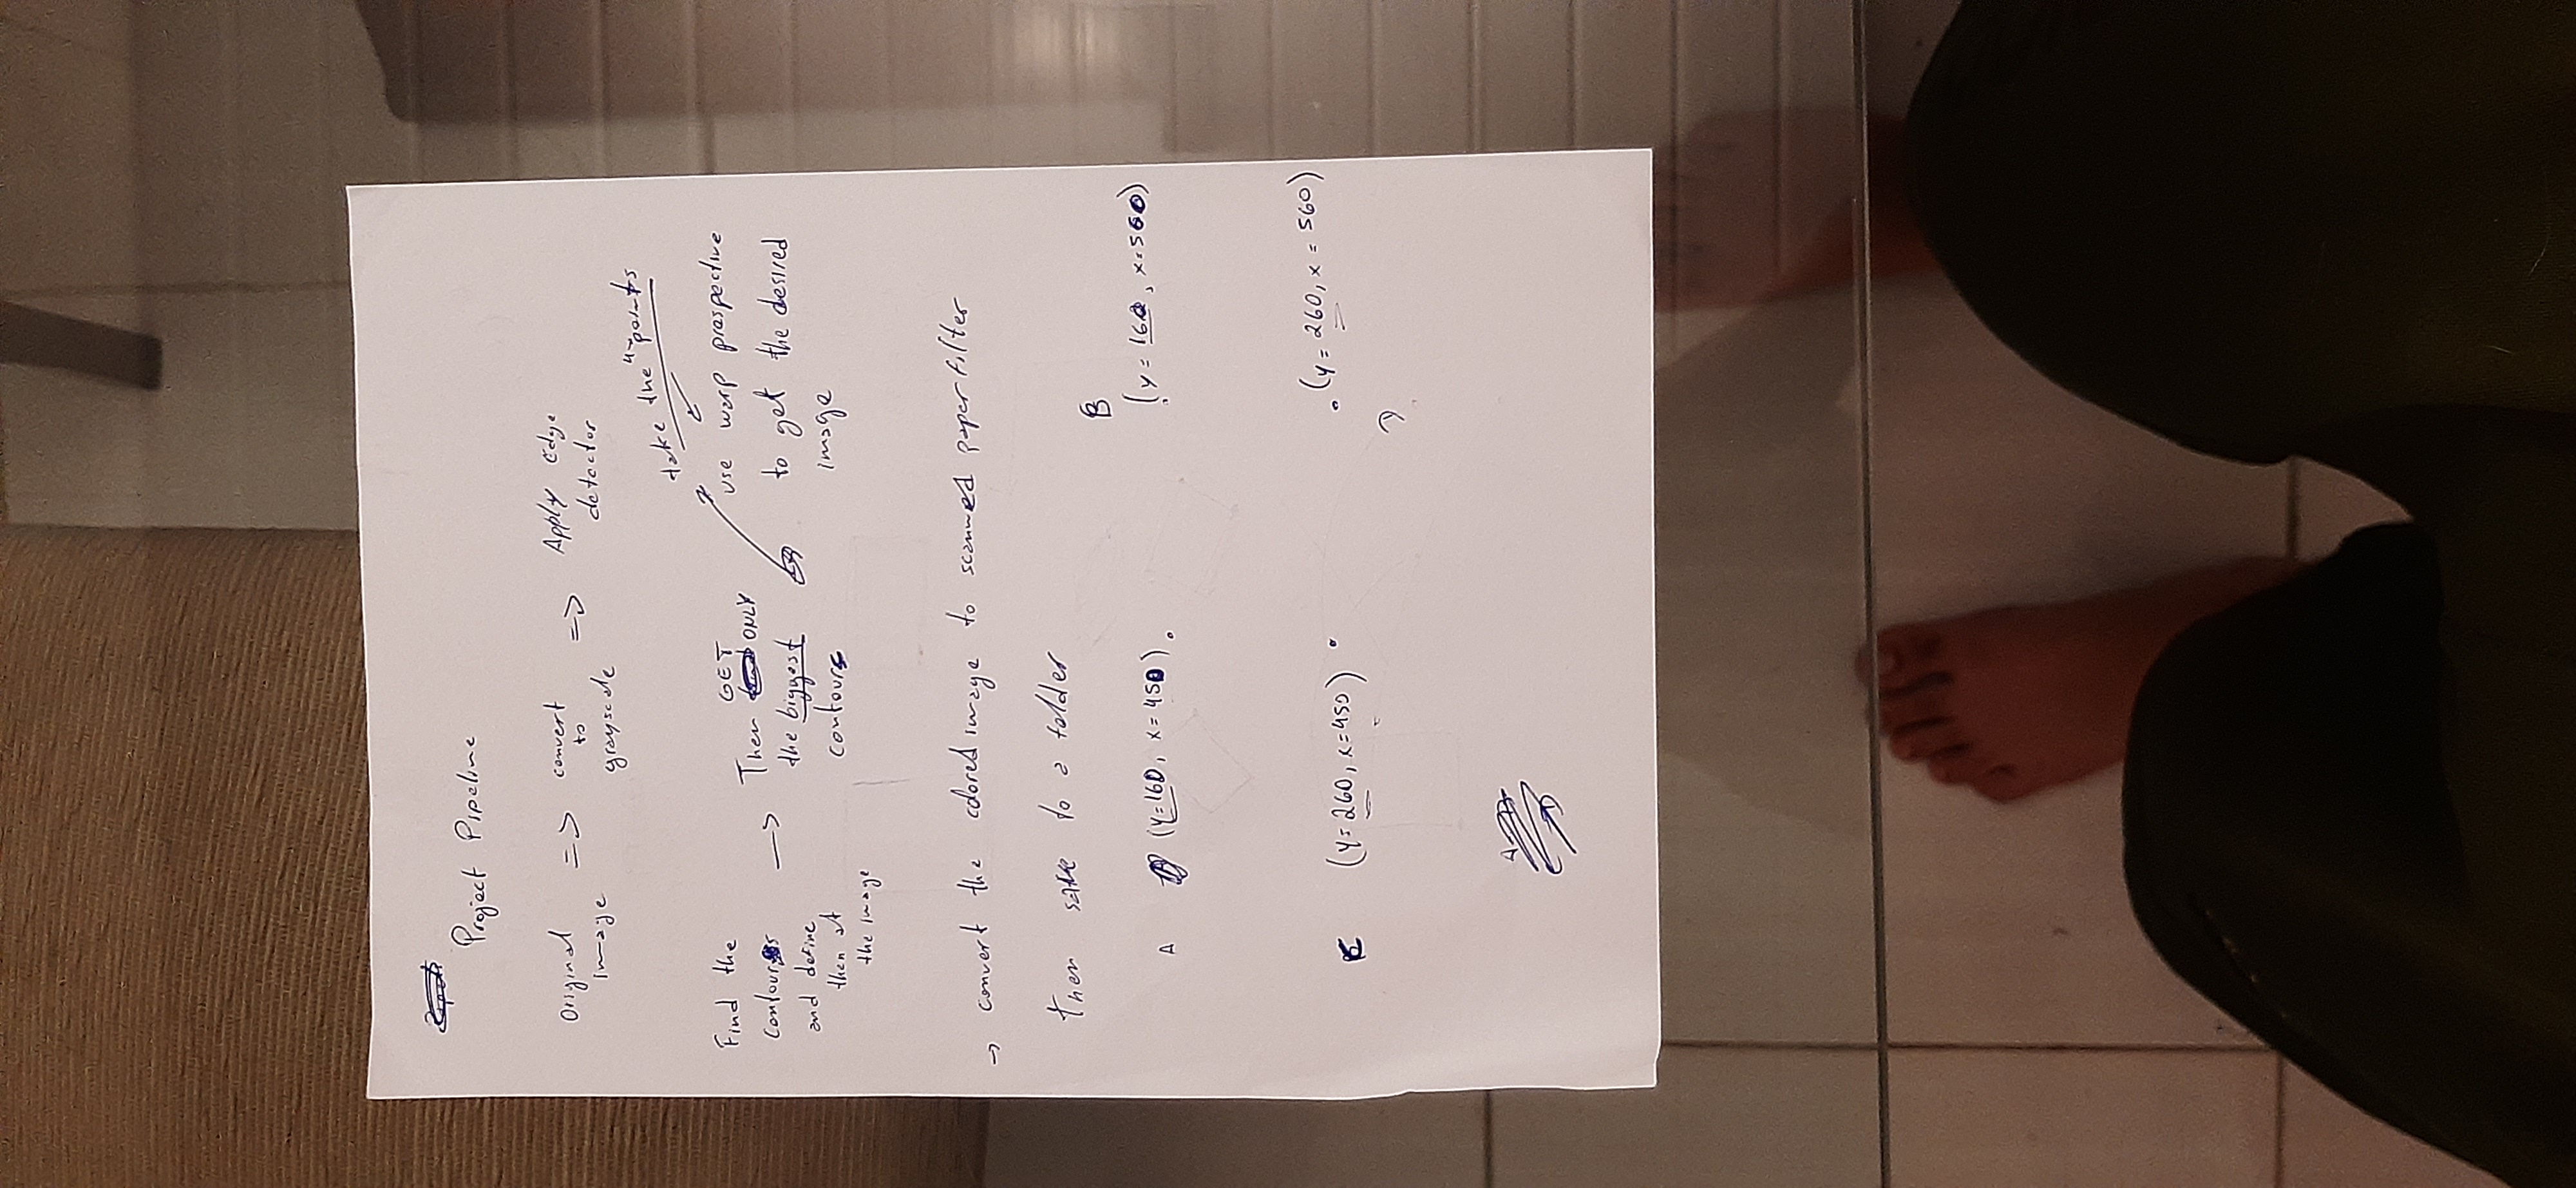 Project Pipeline
Original image => convert to grayscale => Apply Edge detector
take the 4 points
Find the
contours
and define
then at
the image
->
GET
Then ONLY
the biggest
contours
use warp prespective
to get the desired
image
-> convert the colored image to scanned paper filter
then save to a folder
A (y=160, x=450) .
B
(y=160, x=560)
C (y=260, x=450) .
. (y=260, x=560)
D